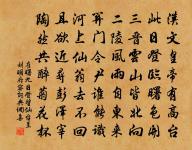 漢文皇帝有高臺
此日登臨曙色開
三晉雲山皆北向
二陵風雨自東來
關門令尹誰能識
河上仙翁去不回
且欲近尋彭澤宰
陶然共醉菊花杯
崔曙九日登望仙臺呈
劉明府容詞典網集